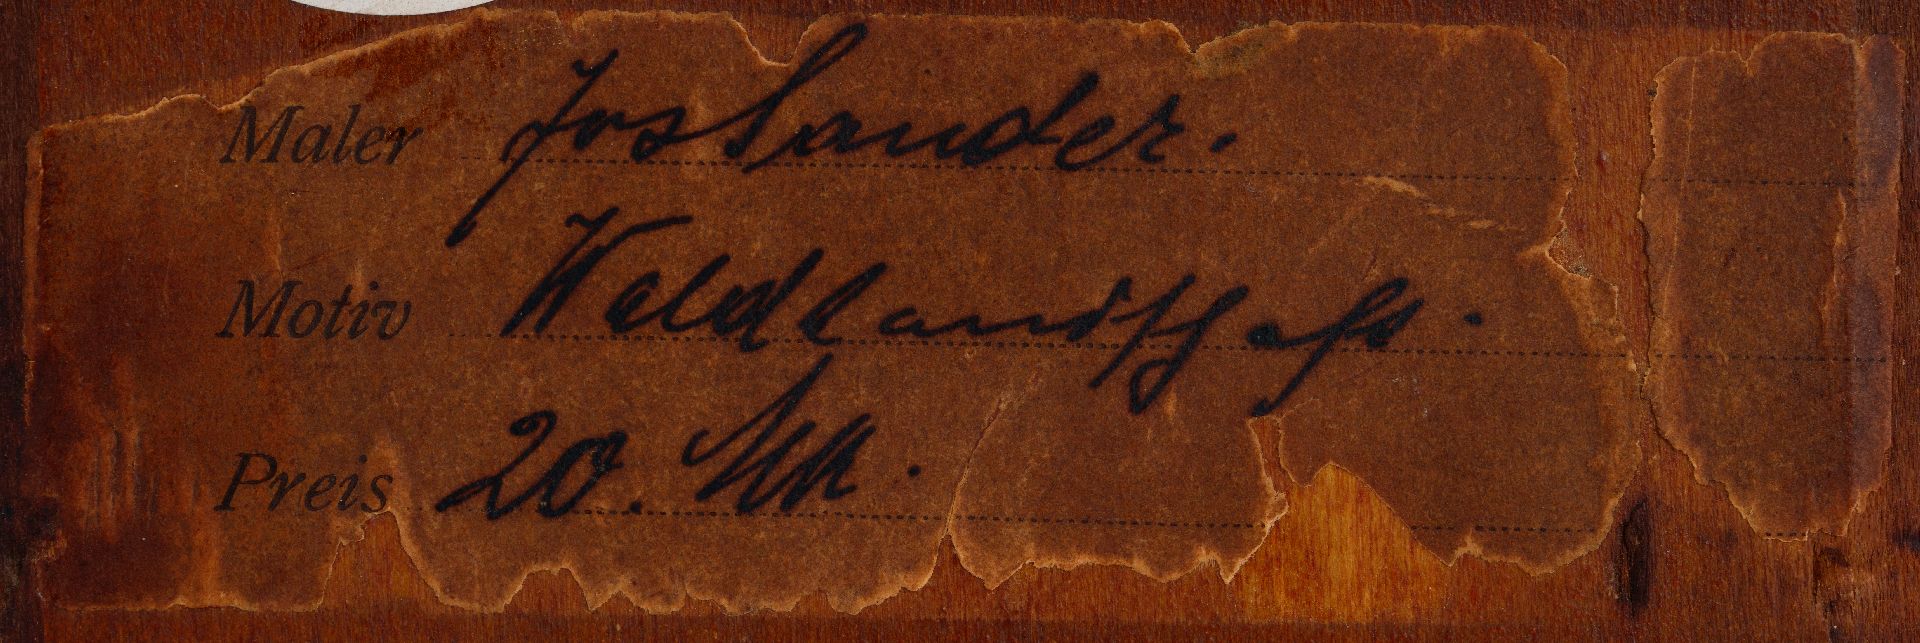 Maler Jos Sauder.
Motiv Waldlandschaft.
Preis 20. Mk.